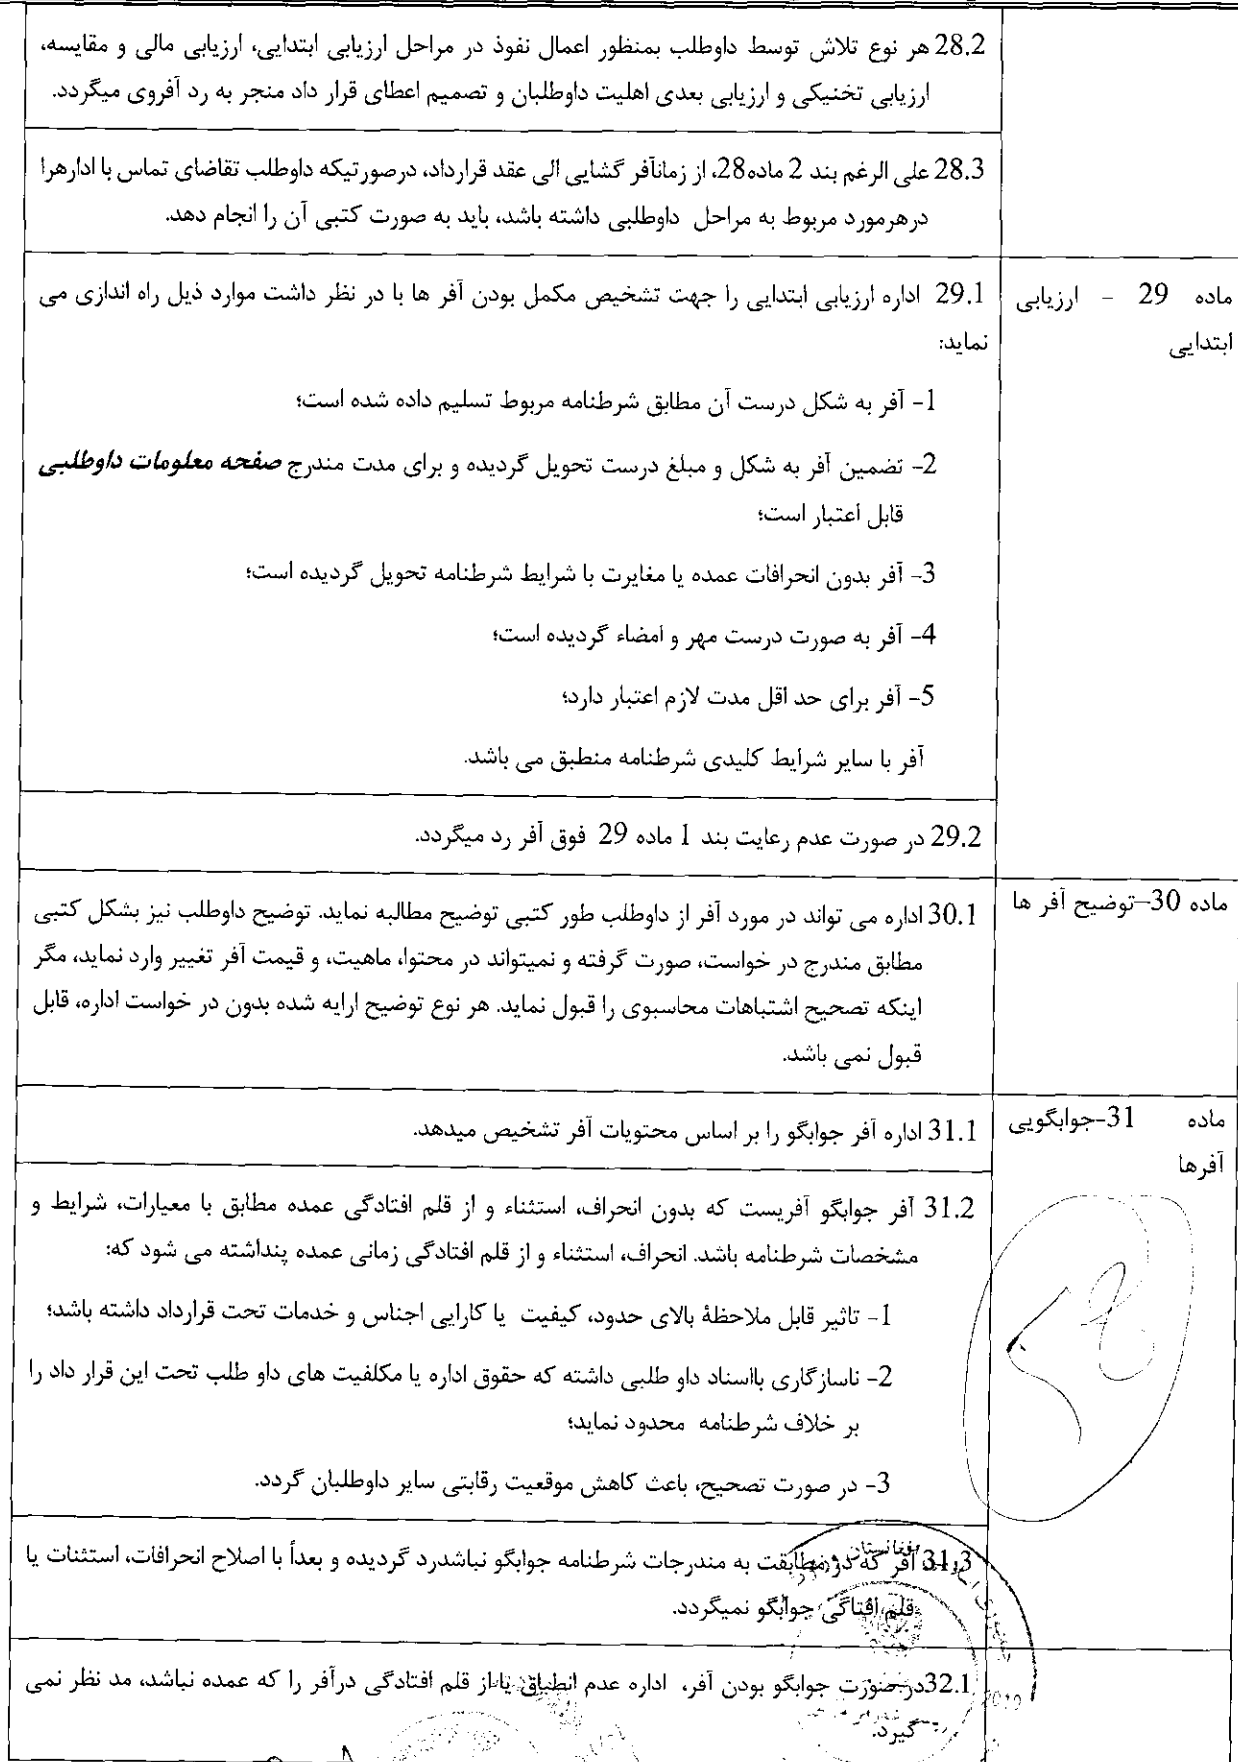 28.2 هر نوع تلاش توسط داوطلب بمنظور اعمال نفوذ در مراحل ارزیابی ابتدایی، ارزیابی مالی و مقایسه،
ارزیابی تخنیکی و ارزیابی بعدی اهلیت داوطلبان و تصمیم اعطای قرار داد منجر به رد آفروی میگردد.
28.3 علی الرغم بند 2 ماده28، از زمانآفر گشایی الی عقد قرارداد، درصورتیکه داوطلب تقاضای تماس با ادارهرا
درهرمورد مربوط به مراحل داوطلبی داشته باشد، باید به صورت کتبی آن را انجام دهد.
ماده 29 – ارزیابی
ابتدایی
29.1 اداره ارزیابی ابتدایی را جهت تشخیص مکمل بودن آفر ها با در نظر داشت موارد ذیل راه اندازی می
نماید:
1- آفر به شکل درست آن مطابق شرطنامه مربوط تسلیم داده شده است؛
2- تضمین آفر به شکل و مبلغ درست تحویل گردیده و برای مدت مندرج صفحه معلومات داوطلبی
قابل اعتبار است؛
3- آفر بدون انحرافات عمده یا مغایرت با شرایط شرطنامه تحویل گردیده است؛
4- آفر به صورت درست مهر و امضاء گردیده است؛
5- آفر برای حد اقل مدت لازم اعتبار دارد؛
آفر با سایر شرایط کلیدی شرطنامه منطبق می باشد.
29.2 در صورت عدم رعایت بند 1 ماده 29 فوق آفر رد میگردد.
ماده 30–توضیح آفر ها
30.1 اداره می تواند در مورد آفر از داوطلب طور کتبی توضیح مطالبه نماید. توضیح داوطلب نیز بشکل کتبی
مطابق مندرج در خواست، صورت گرفته و نمیتواند در محتوا، ماهیت، و قیمت آفر تغییر وارد نماید، مگر
اینکه تصحیح اشتباهات محاسبوی را قبول نماید. هر نوع توضیح ارایه شده بدون در خواست اداره، قابل
قبول نمی باشد.
ماده 31-جوابگویی
آفرها
31.1 اداره آفر جوابگو را بر اساس محتویات آفر تشخیص میدهد.
31.2 آفر جوابگو آفریست که بدون انحراف، استثناء و از قلم افتادگی عمده مطابق با معیارات، شرایط و
مشخصات شرطنامه باشد. انحراف، استثناء و از قلم افتادگی زمانی عمده پنداشته می شود که:
1- تاثیر قابل ملاحظۀ بالای حدود، کیفیت یا کارایی اجناس و خدمات تحت قرارداد داشته باشد؛
2- ناسازگاری بااسناد داو طلبی داشته که حقوق اداره یا مکلفیت های داو طلب تحت این قرار داد را
بر خلاف شرطنامه محدود نماید؛
3- در صورت تصحیح، باعث کاهش موقعیت رقابتی سایر داوطلبان گردد.
31.3 آفر که در مطابقت به مندرجات شرطنامه جوابگو نباشدرد گردیده و بعداً با اصلاح انحرافات، استثنات یا
قلم افتاگی جوابگو نمیگردد.
32.1 درصورت جوابگو بودن آفر، اداره عدم انطباق یا از قلم افتادگی درآفر را که عمده نباشد، مد نظر نمی
گیرد.